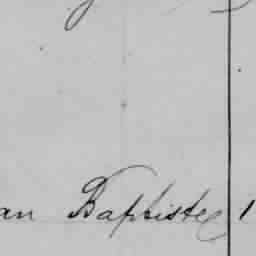 an Baptiste 1